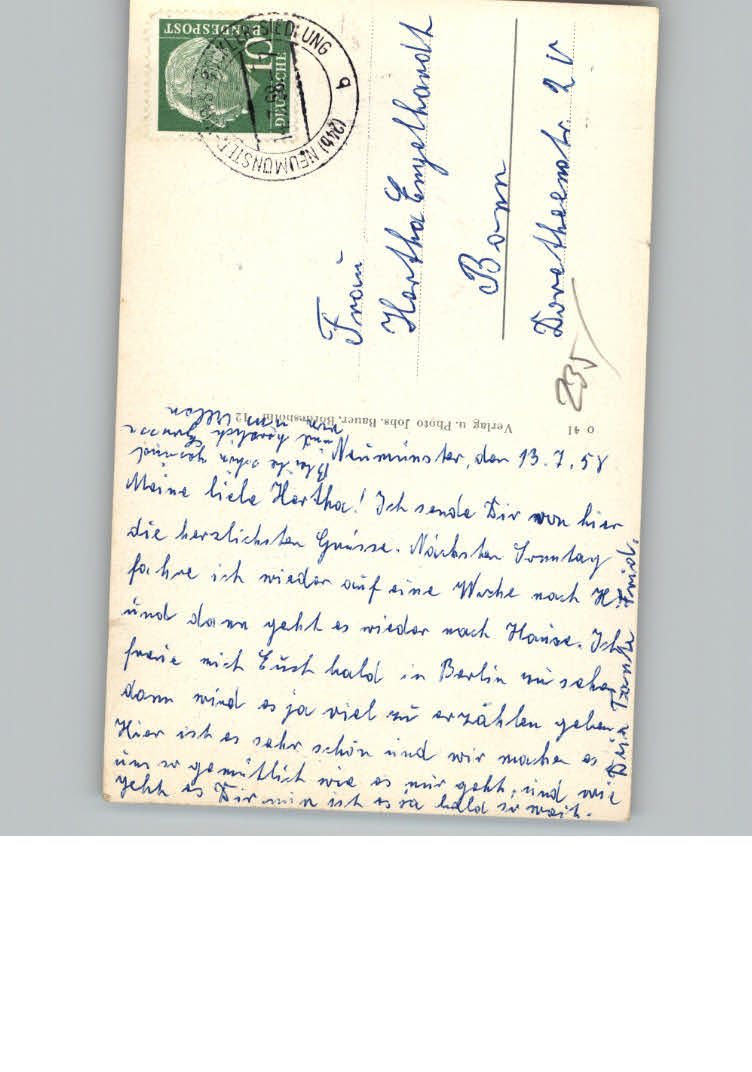 Neumünster, den 13.7.58
Meine liebe Hertha! Ich sende Dir von hier
die herzlichsten Grüsse. Nächsten Sonntag
fahre ich wieder auf eine Woche nach H.
und dann geht es wieder nach Hause. Ich
freue mich Euch bald in Berlin zu sehen
dann wird es ja viel zu erzählen geben.
Hier ist es sehr schön und wir machen es
uns so gemütlich wie es nur geht, und wie
geht es Dir nun ist es ja bald so weit.
Bleibe schön gesund
und herzlich
Deine Tante Fried.
Frau
Hertha Engelhardt
Bonn
Dorotheenstr. 2 V
235
DEUTSCHE
BUNDESPOST
10
(24b) NEUMÜNSTER
SIEDLUNG
q
Verlag u. Photo Johs. Bauer, Bordesholm
o 41